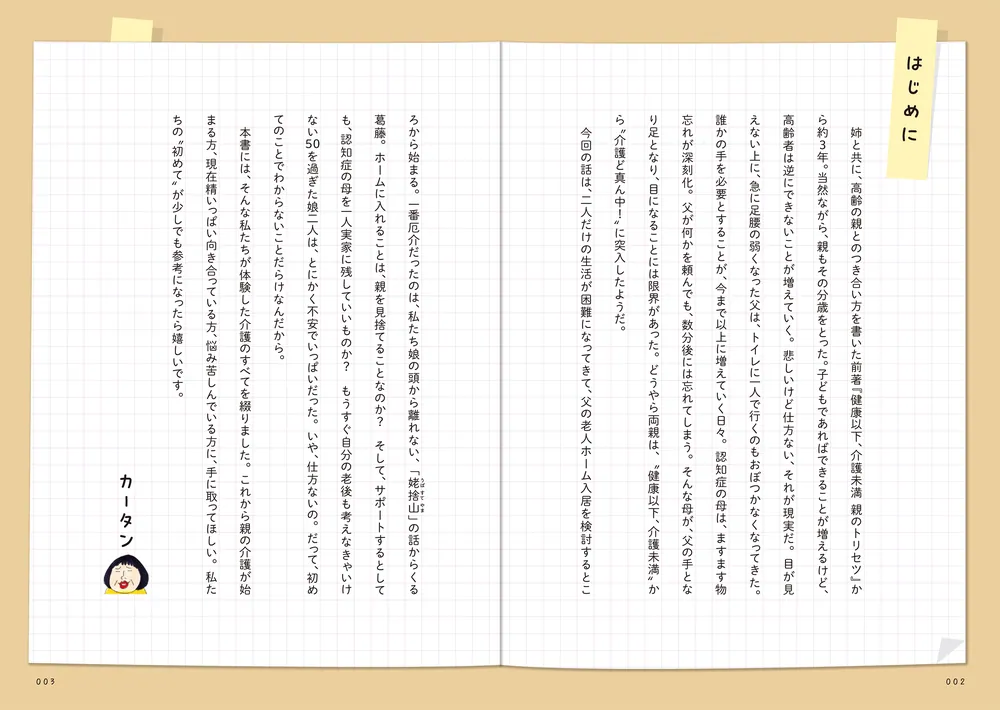 はじめに
姉と共に、高齢の親とのつき合い方を書いた前著『健康以下、介護未満 親のトリセツ』か
ら約3年。当然ながら、親もその分歳をとった。子どもであればできることが増えるけど、
高齢者は逆にできないことが増えていく。悲しいけど仕方ない、それが現実だ。目が見
えない上に、急に足腰の弱くなった父は、トイレに一人で行くのもおぼつかなくなってきた。
誰かの手を必要とすることが、今まで以上に増えていく日々。認知症の母は、ますます物
忘れが深刻化。父が何かを頼んでも、数分後には忘れてしまう。そんな母が、父の手とな
り足となり、目になることには限界があった。どうやら両親は、〝健康以下、介護未満〟か
ら〝介護ど真ん中!〟に突入したようだ。
今回の話は、二人だけの生活が困難になってきて、父の老人ホーム入居を検討するとこ
ろから始まる。一番厄介だったのは、私たち娘の頭から離れない、「姥捨山」の話からくる
うばすてやま
葛藤。ホームに入れることは、親を見捨てることなのか? そして、サポートするとして
も、認知症の母を一人実家に残していいものか? もうすぐ自分の老後も考えなきゃいけ
ない50を過ぎた娘二人は、とにかく不安でいっぱいだった。いや、仕方ないの。だって、初め
てのことでわからないことだらけなんだから。
本書には、そんな私たちが体験した介護のすべてを綴りました。これから親の介護が始
まる方、現在精いっぱい向き合っている方、悩み苦しんでいる方に、手に取ってほしい。私た
ちの〝初めて〟が少しでも参考になったら嬉しいです。
カータン
003
002